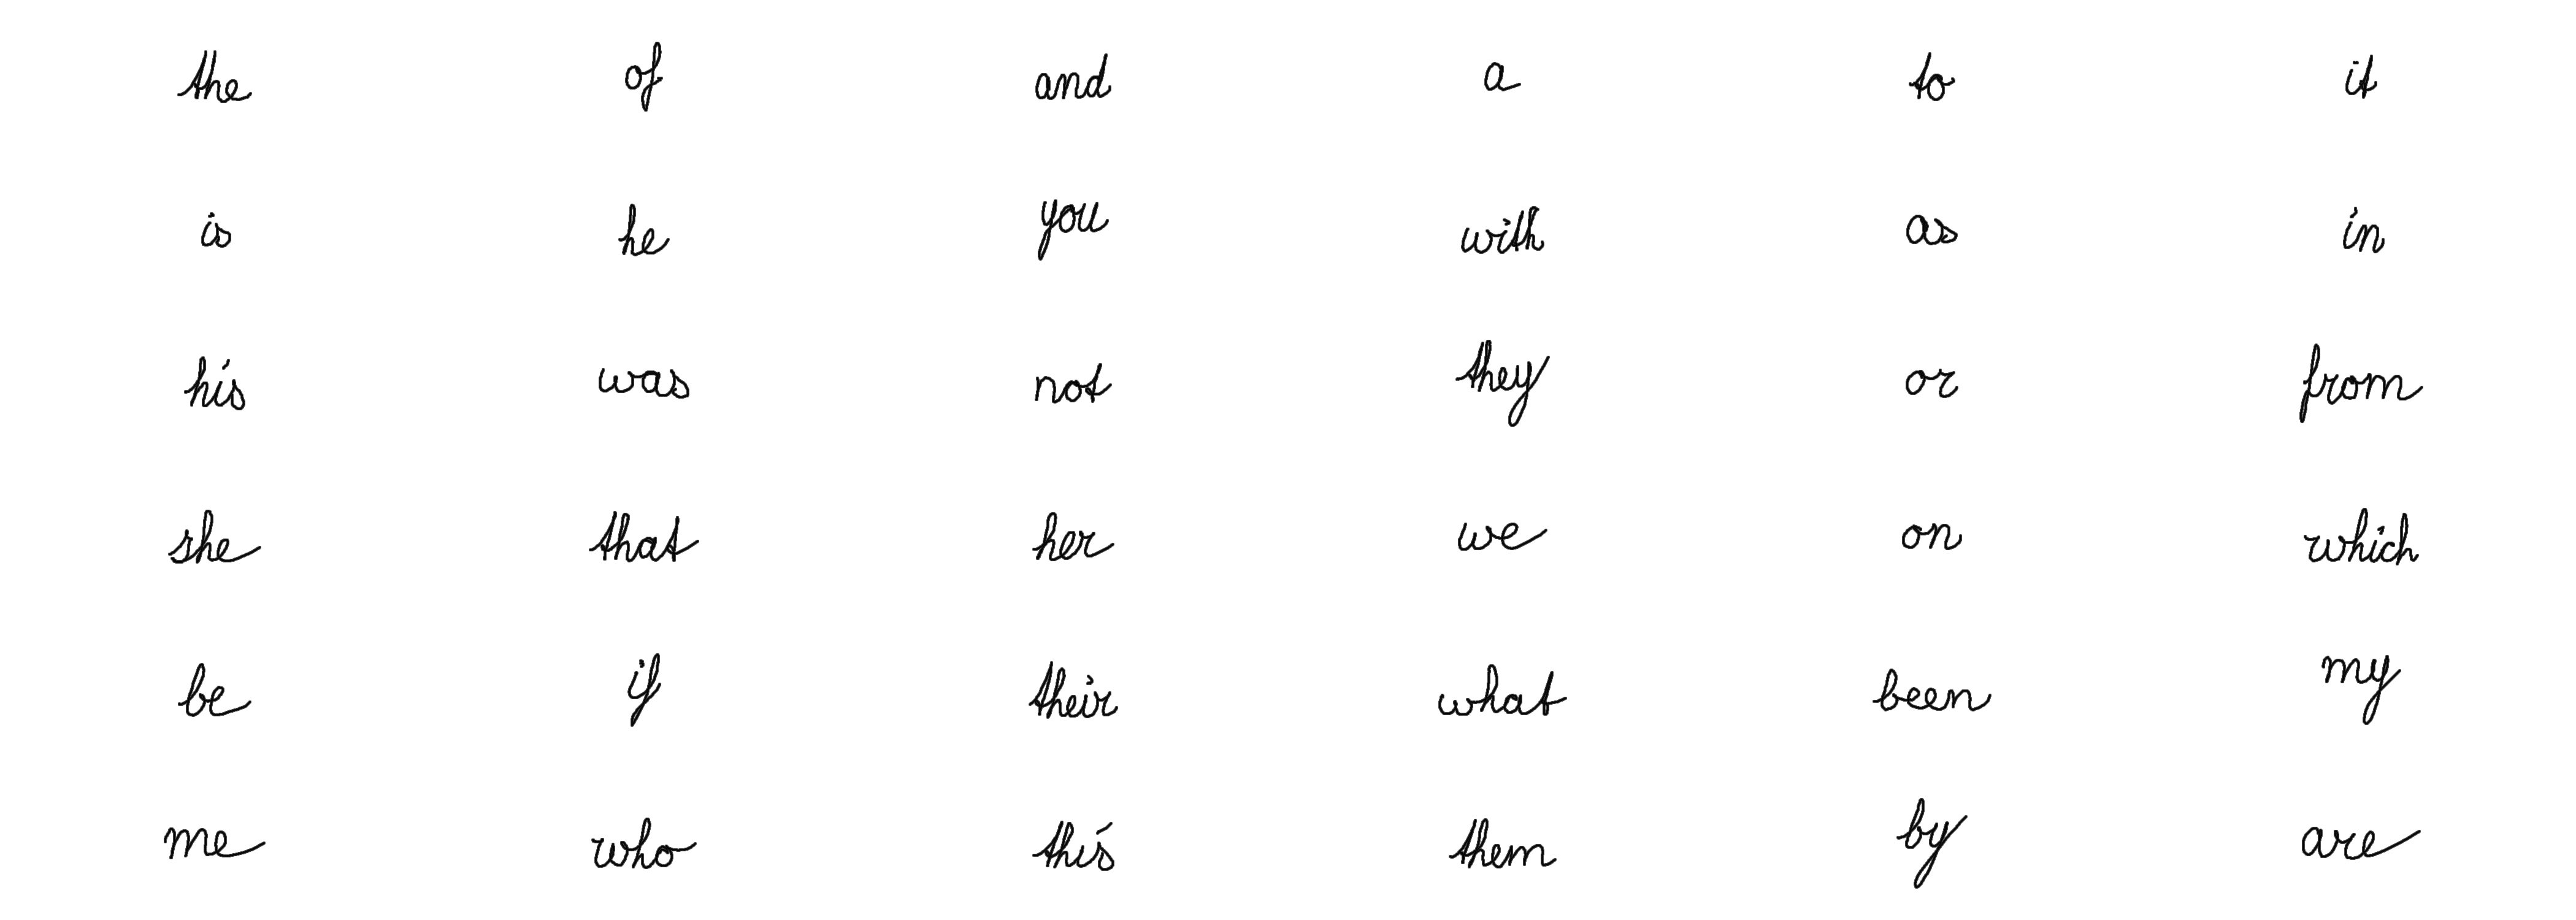 the of and a to it
is he you with as in
his was not they or from
she that her we on which
be if their what been my
me who this them by are